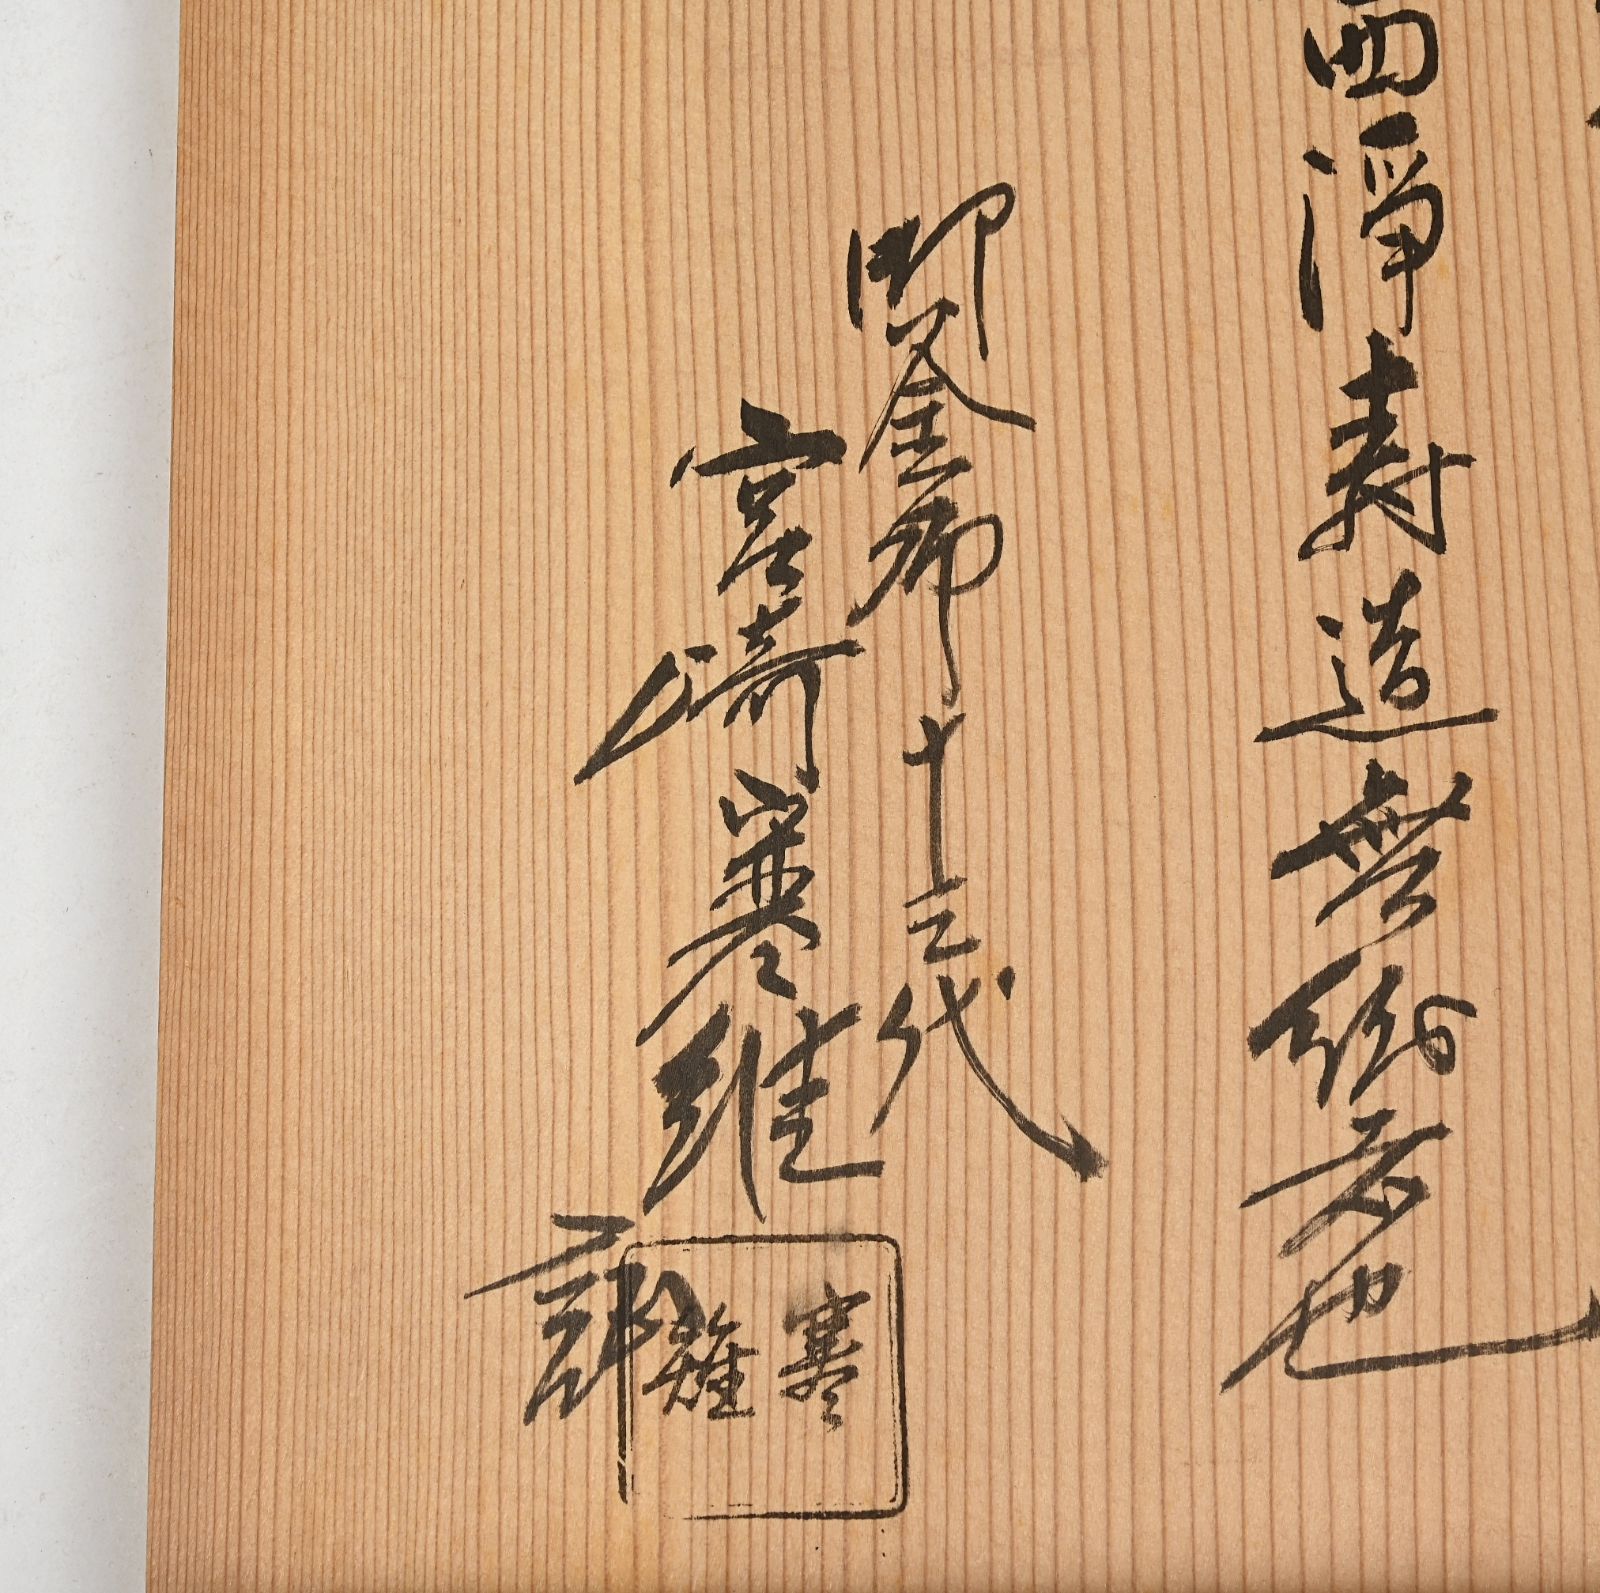 西浄寿造無紛者也
御釜師十三代
宮崎寒雉
識
寒雉